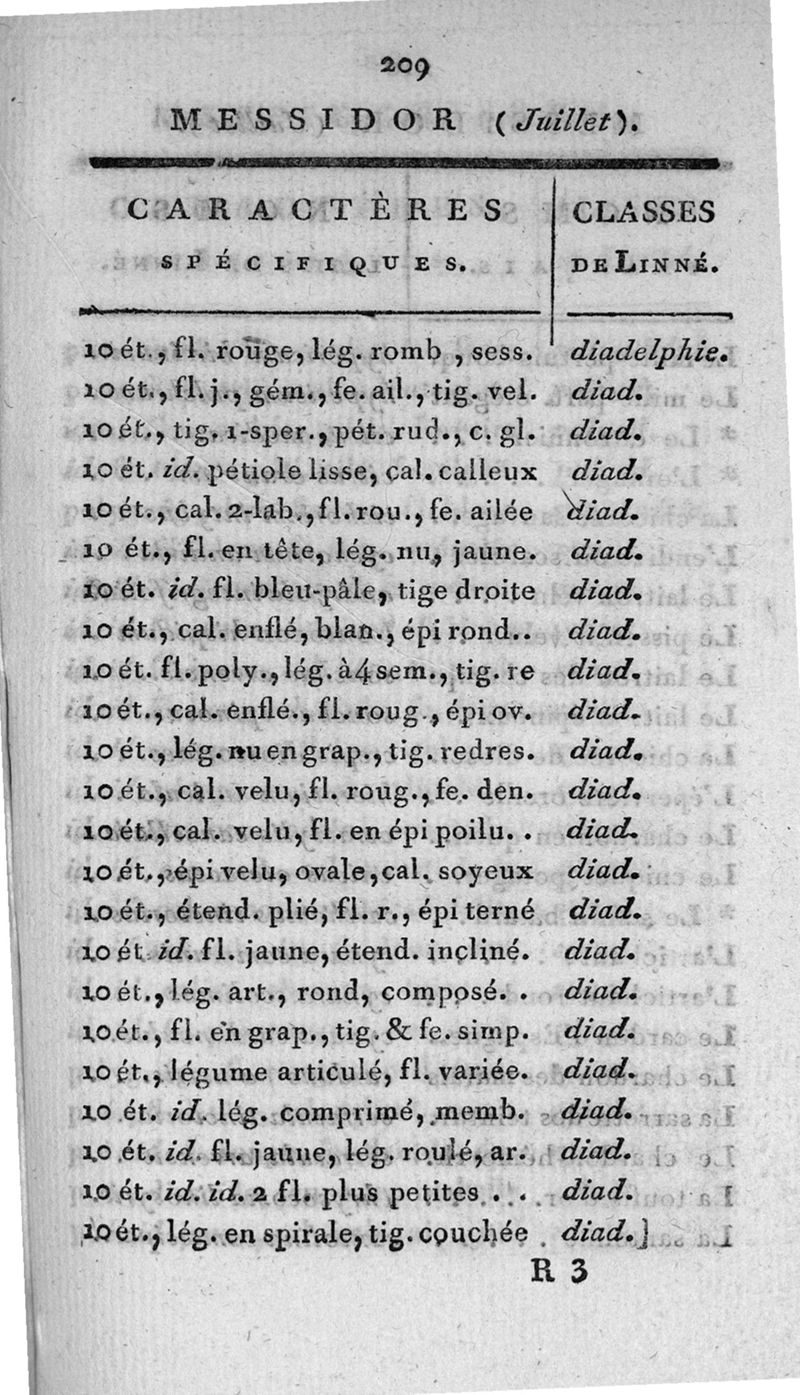 209
MESSIDOR (Juillet).
CARACTÈRES
SPÉCIFIQUES.
CLASSES
DE LINNÉ.
10 ét., fl. rouge, lég. romb , sess. diadelphie.
10 ét., fl. j., gém., fe. ail., tig. vel. diad.
10 ét., tig. 1-sper., pét. rud., c. gl. diad.
10 ét. id. pétiole lisse, cal. calleux diad.
10 ét., cal. 2-lab., fl. rou., fe. ailée diad.
10 ét., fl. en tête, lég. nu, jaune. diad.
10 ét. id. fl. bleu-pâle, tige droite diad.
10 ét., cal. enflé, blan., épi rond.. diad.
10 ét. fl. poly., lég. à 4 sem., tig. re diad.
10 ét., cal. enflé., fl. roug., épi ov. diad.
10 ét., lég. nu en grap., tig. redres. diad.
10 ét., cal. velu, fl. roug., fe. den. diad.
10 ét., cal. velu, fl. en épi poilu. . diad.
10 ét., épi velu, ovale, cal. soyeux diad.
10 ét., étend. plié, fl. r., épi terné diad.
10 ét. id. fl. jaune, étend. incliné. diad.
10 ét., lég. art., rond, composé. . diad.
10 ét., fl. en grap., tig. & fe. simp. diad.
10 ét., légume articulé, fl. variée. diad.
10 ét. id. lég. comprimé, memb. diad.
10 ét. id. fl. jaune, lég. roulé, ar. diad.
10 ét. id. id. 2 fl. plus petites . . . diad.
10 ét., lég. en spirale, tig. couchée . diad.]
R 3